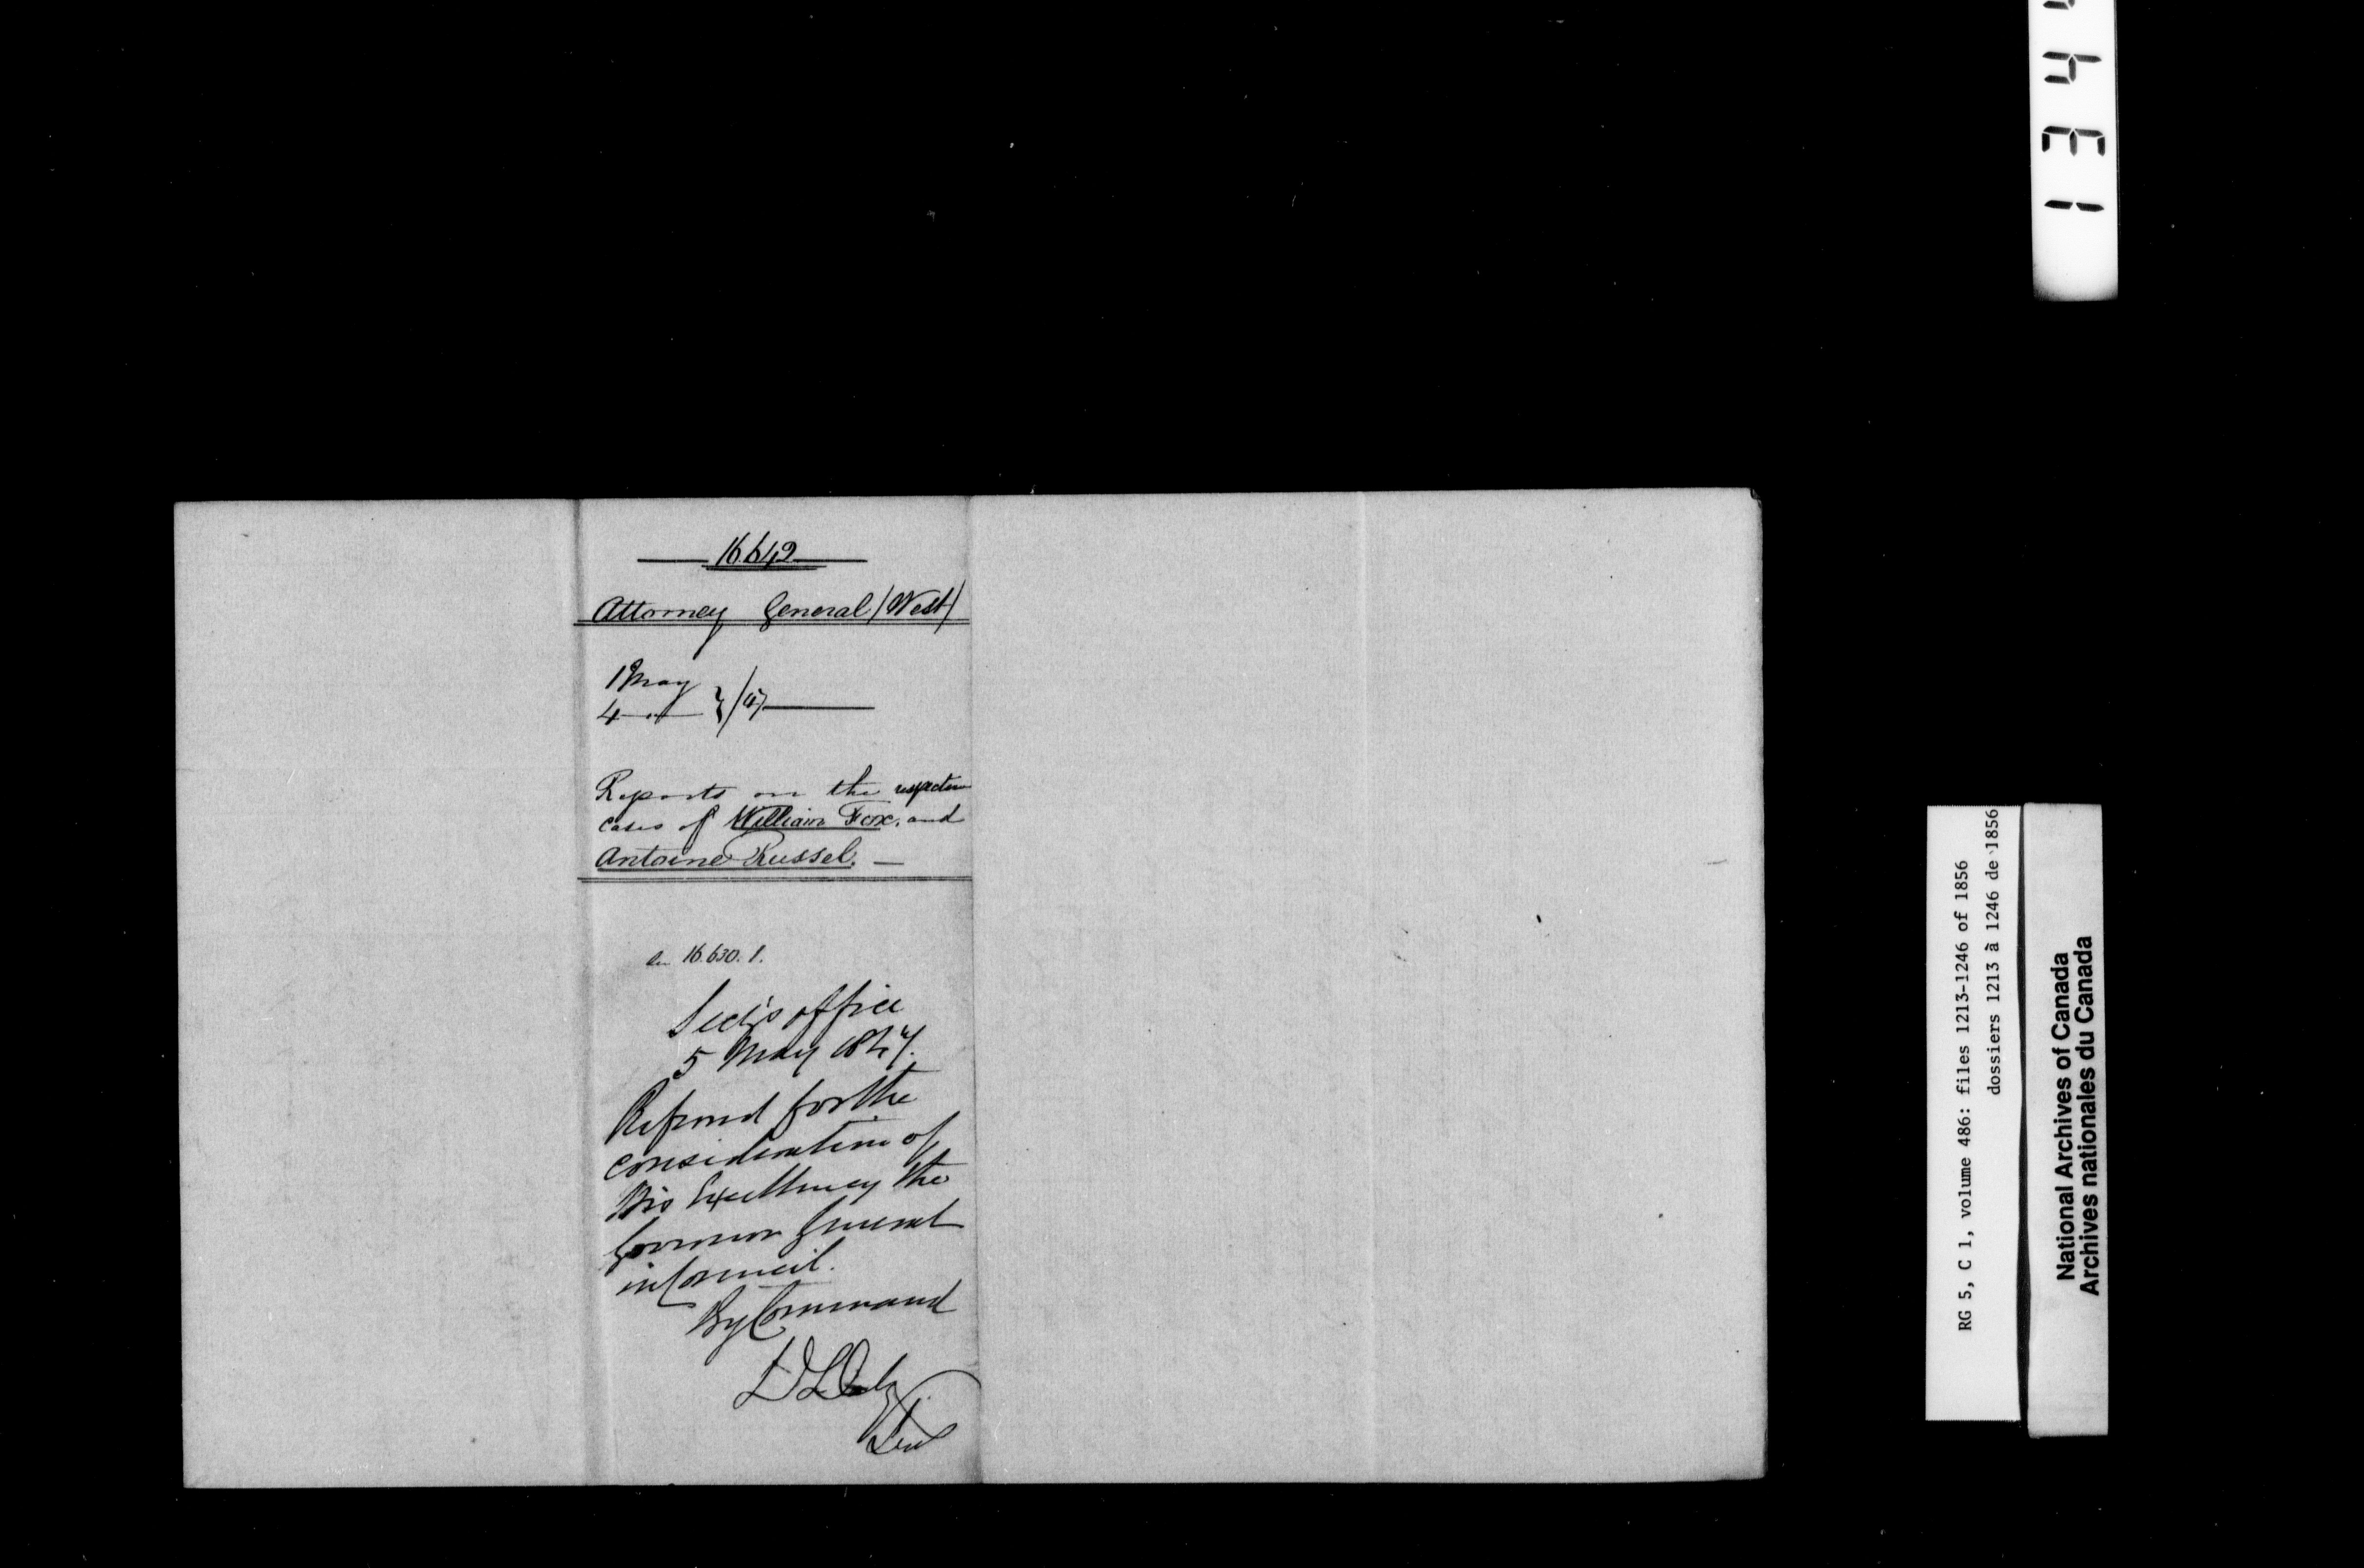 16.642
Attorney General (West)
1 May
4 " } /47
Reports on the respective
cases of William Fox, and
Antoine Russel. —
16.630. 1.
Sec's office
5 May 1847.
Referred for the
consideration of
His Excellency the
Governor General
in Council.
By Command
D Daly
Sec
1 3 4 4
RG 5, C 1, volume 486: files 1213-1246 of 1856
dossiers 1213 à 1246 de 1856
National Archives of Canada
Archives nationales du Canada